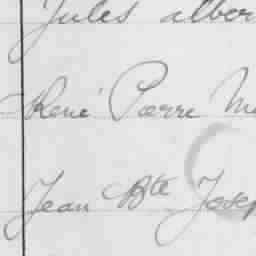 Jules alber
René Pierre M
Jean Bte Josep